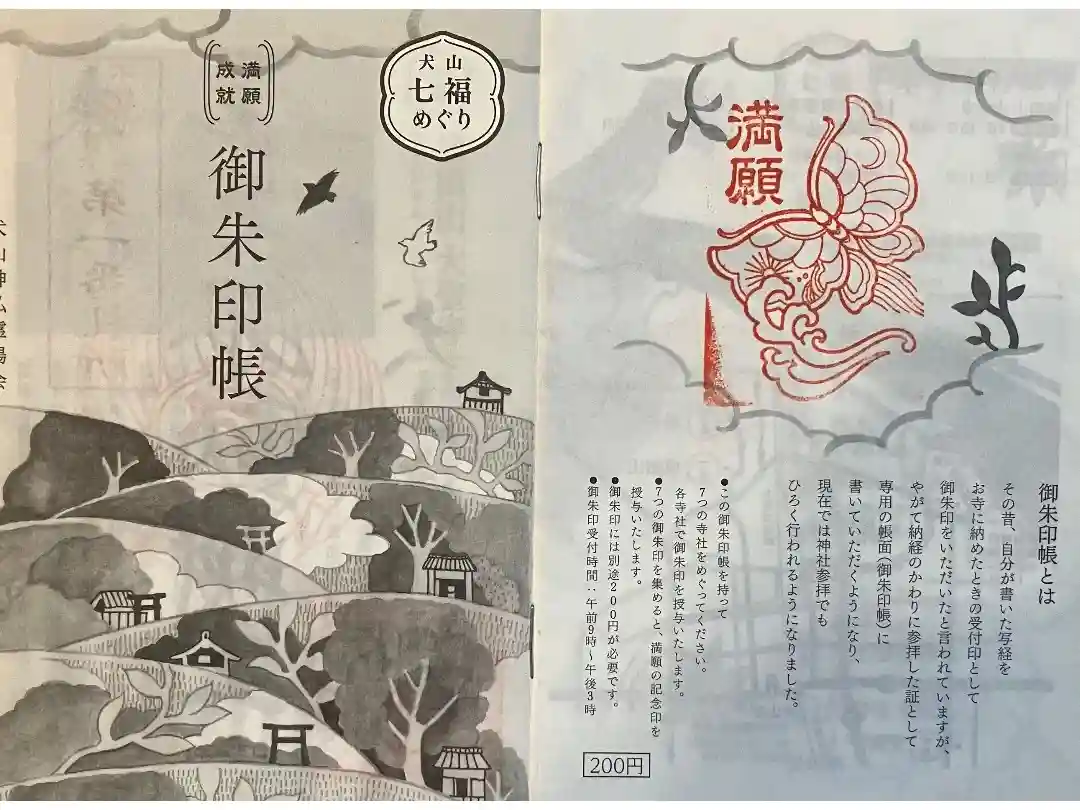 犬山
七福
めぐり
満願
成就
御朱印帳
犬山神仏霊場会
満願
御朱印帳とは
その昔、自分が書いた写経を
お寺に納めたときの受付印として
御朱印をいただいたと言われていますが、
やがて納経のかわりに参拝した証として
専用の帳面(御朱印帳)に
書いていただくようになり、
現在では神社参拝でも
ひろく行われるようになりました。
●この御朱印帳を持って
7つの寺社をめぐってください。
各寺社で御朱印を授与いたします。
●7つの御朱印を集めると、満願の記念印を
授与いたします。
●御朱印には別途200円が必要です。
●御朱印受付時間:午前9時〜午後3時
200円